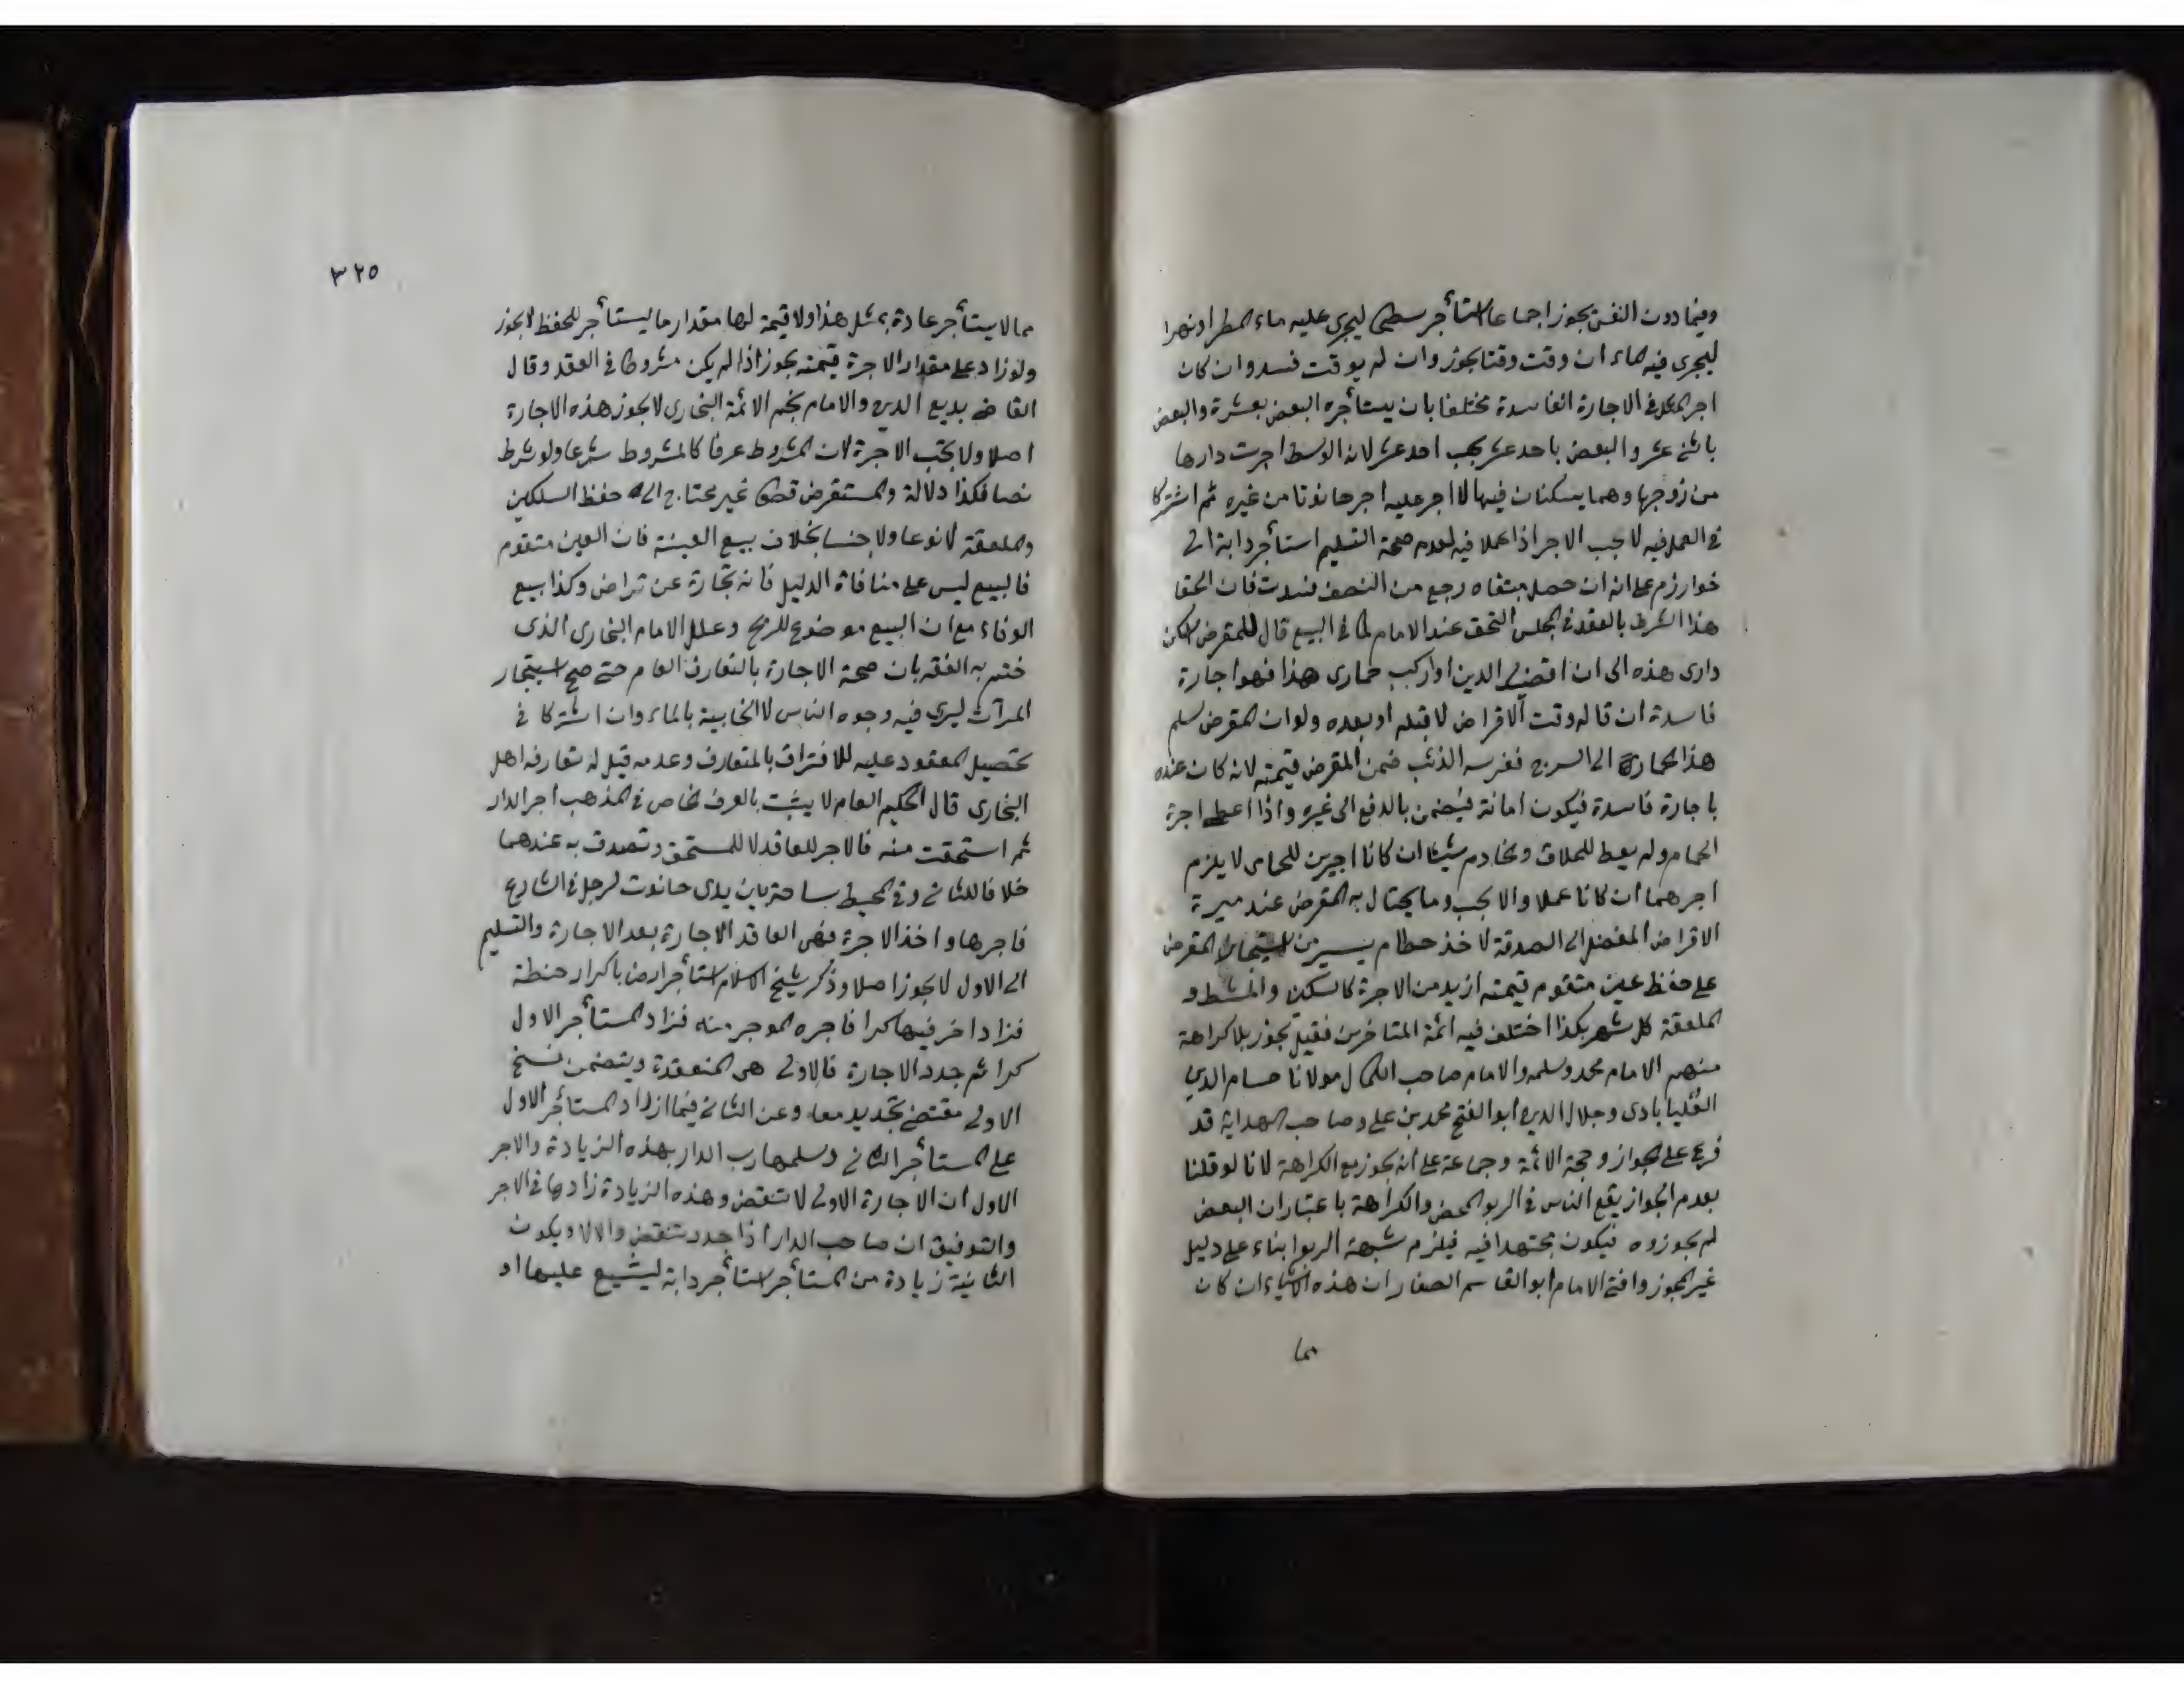 وفيما دون النفس يجوز اجماعا استأجر سطحا ليجري عليه ماء المطر او نهرا
ليجري فيه الماء ان وقت وقتا يجوز وان لم يوقت فسد وان كان
اجر المثل في الاجارة الفاسدة مختلفا بان يستأجره البعض بعشرة والبعض
باثني عشر والبعض باحد عشر يجب احد عشر لانه الوسط اجرت دارها
من زوجها وهما يسكنان فيها لا اجر عليه اجر حانوتا من غيره ثم اشتركا
في العمل فيه لا يجب الاجر اذا عملا فيه لعدم صحة التسليم استأجر دابة الى
خوارزم على انه ان حصل مبتغاه رجع من النصف فسدت فان الحقا
هذا الشرط بالعقد في المجلس التحق عند الامام كما في البيع قال للمقرض اسكن
داري هذه الى ان اقضي الدين او اركب حماري هذا فهو اجارة
فاسدة ان قاله وقت الاقراض لا قبله او بعده ولو ان المقرض سلم
هذا الحمار الى السرح فغرسه الذئب ضمن المقرض قيمته لانه كان عنده
باجارة فاسدة فيكون امانة فيضمن بالدفع الى غيره واذا اعطى اجرة
الحمام ولم يعط للحلاق والخادم شيئا ان كانا اجيرين للحمامي لا يلزم
اجرهما ان كانا عملا والا يجب وما يحتال به المقرض عند ميرة
الاقراض المفضل الى الصدقة لاخذ حطام يسير من استيجار المقرض
على حفظ عين متقوم قيمته ازيد من الاجرة كالسكين والمشط و
الملعقة كل شهر بكذا اختلف فيه ائمة المتاخرين فقيل يجوز بلا كراهة
منهم الامام محمد وسلمه والامام صاحب الكمال مولانا حسام الدين
العليابادي وجلال الدين ابو الفتح محمد بن علي وصاحب الهداية قد
فرع على الجواز وحجة الائمة وجماعة على انه يجوز مع الكراهة لانا لو قلنا
بعدم الجواز يقع الناس في الربو المحض والكراهة باعتبار ان البعض
لم يجوزوه فيكون مجتهدا فيه فيلزم شبهة الربوا بناء على دليل
غير المجوز وافتى الامام ابو القاسم الصفار ان هذه الاشياء ان كان
مما
٣٢٥
مما لا يستأجر عادة بمثل هذا ولا قيمة لها مقدار ما يستأجر للحفظ لا يجوز
ولو زاد على مقدار الاجرة قيمته يجوز اذا لم يكن مشروطا في العقد وقال
القاضي بديع الدين والامام نجم الائمة البخاري لا يجوز هذه الاجارة
اصلا ولا يجب الاجرة لان المشروط عرفا كالمشروط شرعا ولو شرط
نصا فكذا دلالة والمستقرض قطعا غير محتاج الى حفظ السكين
والملعقة لا نوعا ولا جنسا بخلاف بيع العينة فان العين متقوم
فالبيع ليس على منافاة الدليل فانه تجارة عن تراض وكذا بيع
الوفاء مع ان البيع موضوع للربح وعلل الامام البخاري الذي
ختم به الفقه بان صحة الاجارة بالتعارف العام حتى صح استيجار
المرآت ليرى فيه وجوه الناس لا الخابية بالماء وان اشتركا في
تحصيل المعقود عليه للافتراق بالمتعارف وعدمه قيل له تعارفه اهل
البخاري قال الحكم العام لا يثبت بالعرف الخاص في المذهب اجر الدار
ثم استحقت منه فالاجر للعاقد لا للمستحق وتصدق به عندهما
خلافا للثاني وفي المحيط ساحة بين يدي حانوت لرجل في الشارع
فاجرها واخذ الاجرة فهي العاقد الاجارة بعد الاجارة والتسليم
الى الاول لا يجوز اصلا وذكر شيخ الاسلام استأجر ارضا باكرار حنطة
فزاد اخر فيها كرا فاجره الموجر منه فزاد المستأجر الاول
كرا ثم جدد الاجارة فالاولى هي المنعقدة ويتضمن فسخ
الاولى مقتضى تجديد معه وعن الثاني فيما ازداد المستأجر الاول
على المستأجر الثاني وسلمها رب الدار بهذه الزيادة والاجر
الاول ان الاجارة الاولى لا تنقض وهذه الزيادة زادها في الاجر
والتوفيق ان صاحب الدار اذا جدد تنقض والا لا ويكون
الثانية زيادة من المستأجر استأجر دابة ليشيع عليها او